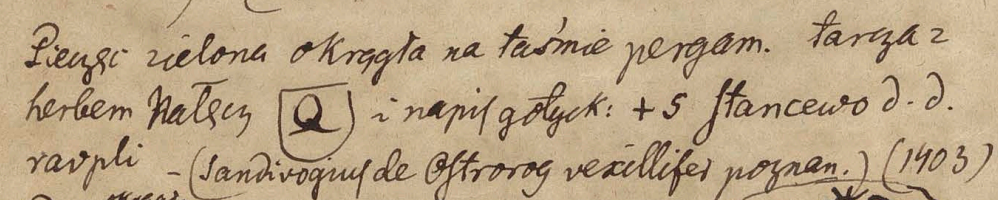 Pieczęć zielona okrągła na taśmie pergam. tarcza z
herbem Nałęcz i napis gotyck: + S Stancewo d. d.
ravpli - (Sandivogius de Ostrorog vexillifer poznan.) (1403)